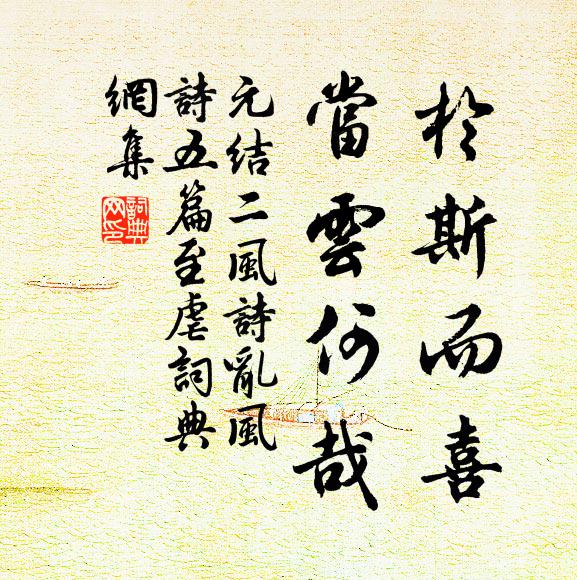 於斯而喜
當雲何哉
元結二風詩亂風
詩五篇至虐詞典
網集
詞典
网印